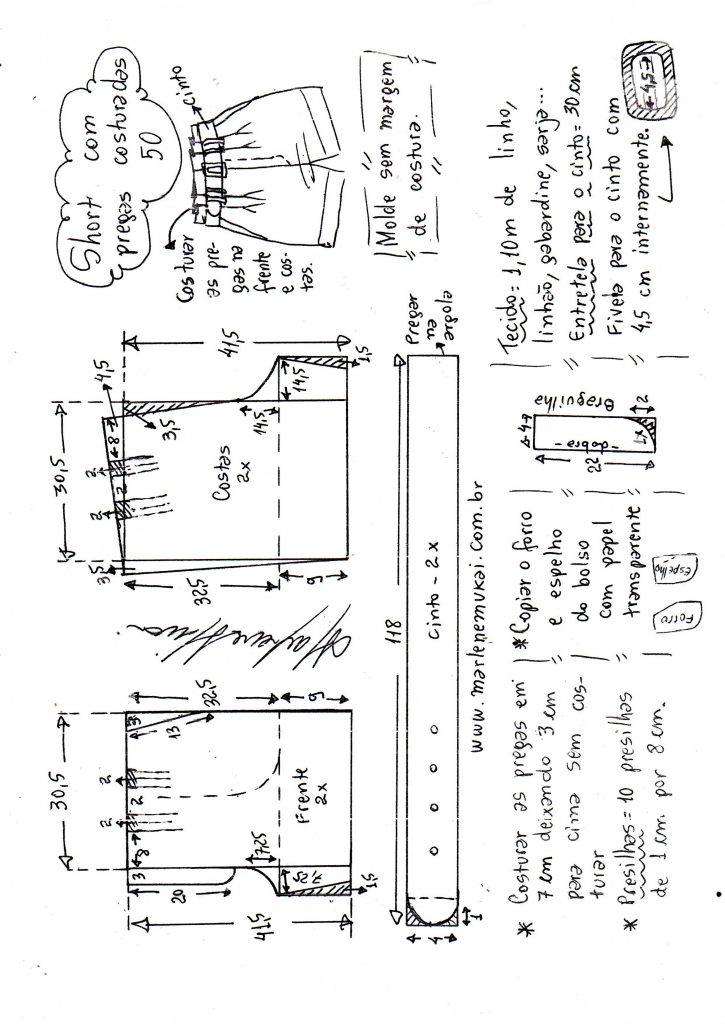 Short com
pregas costuradas
50
cinto
Costurar
as pre-
gas na
frente
e cos-
tas.
Molde sem margem
de costura.
30,5
4,5
3,5
8
2
2
2
3,5
41,5
32,5
9
14,5
14,5
1,5
Costas
2x
30,5
3
13
2
2
2
8
3
20
41,5
32,5
9
7,25
7,25
1,5
Frente
2x
118
4
1
cinto - 2x
Pregar
na
argola
www.marlenemukai.com.br
* Costurar as pregas em
7 cm deixando 3 cm
para cima sem cos-
turar
* Presilhas = 10 presilhas
de 1 cm por 8 cm.
* Copiar o forro
e espelho
do bolso
com papel
transparente
Forro
Espelho
4
22
-dobra-
1x
2
Braguilha
Tecido = 1,10m de linho,
linhão, gabardine, sarja...
Entretela para o cinto = 30 cm
Fivela para o cinto com
4,5 cm internamente.
4,5